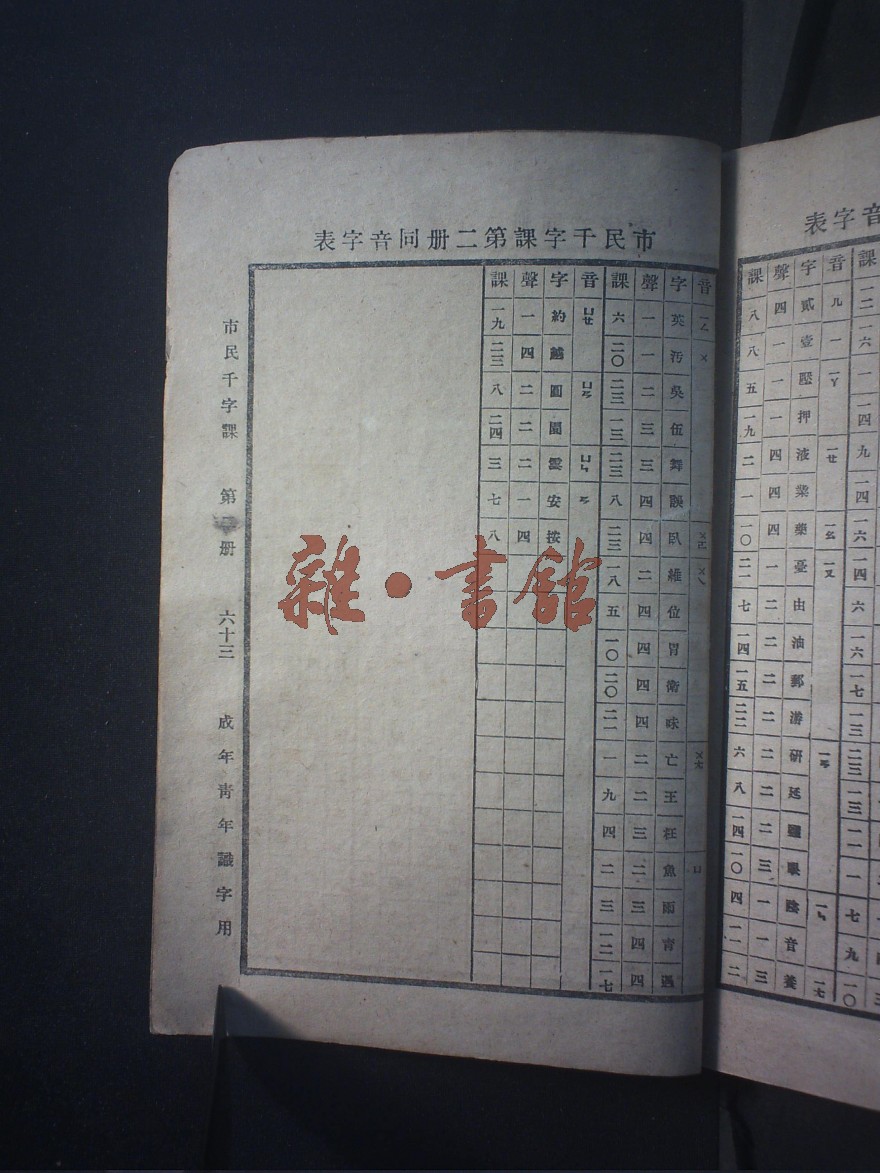 市民千字課第二册同音字表
音 ㄧㄥ ㄨ ㄨㄛ ㄨㄟ ㄨㄤ ㄩ
字 英 污 吳 伍 舞 誤 臥 維 位 胃 衛 味 亡 王 枉 魚 雨 育 遇
聲 一 一 二 三 三 四 四 二 四 四 四 四 二 二 三 二 三 四 四
課 六 二〇 二三 一三 二三 八 二三 一八 五 一〇 二〇 二一 一 九 四 二 三 一二 一七
音 ㄩㄝ ㄩㄢ ㄩㄣ ㄢ
字 約 越 圓 園 雲 安 按
聲 一 四 二 二 二 一 四
課 一九 二三 八 二四 三 七 八
市民千字課 第 册 六十三 成年靑年識字用
雜·書館
音字表
課 一二 一六 一 一四 九 一四 一六 一四 六 一六 一七 一三 二三 一三 一一 一 七 九 一〇
音 ㄦ ㄧ ㄧㄚ ㄧㄝ ㄧㄠ ㄧㄡ ㄧㄢ ㄧㄣ ㄧㄤ
字 貳 壹 壓 押 液 業 藥 憂 由 油 郵 游 研 延 鹽 眼 陰 音 養
聲 四 一 一 一 四 四 四 一 二 二 二 二 二 二 二 三 一 一 三
課 八 八 五 一九 二 一 一〇 二一 七 一四 一五 二二 六 八 一四 一〇 四 一一 二